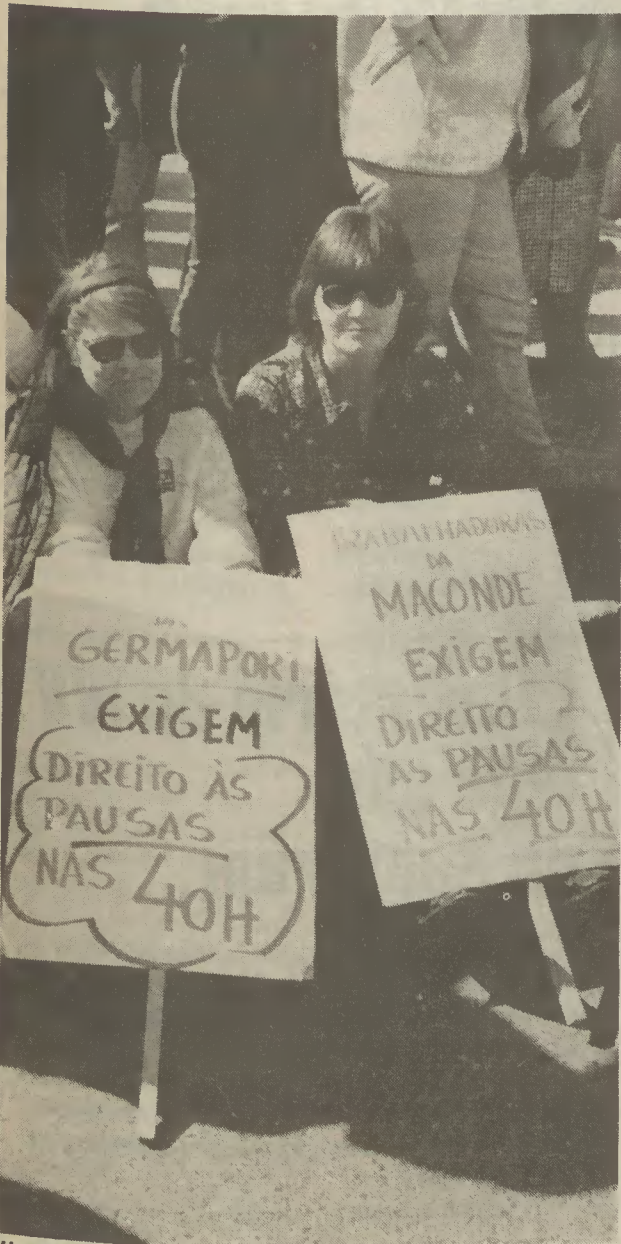 GERMAPORT
EXIGEM
DIREITO ÀS
PAUSAS
NAS 40H
TRABALHADORAS
DA
MACONDE
EXIGEM
DIREITO
ÀS PAUSAS
NAS 40H